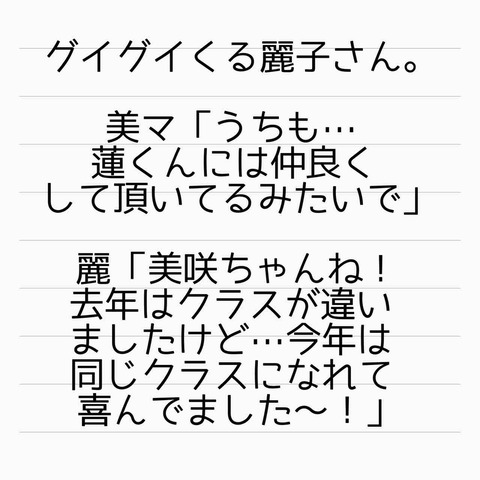 グイグイくる麗子さん。
美マ「うちも…
蓮くんには仲良く
して頂いてるみたいで」
麗「美咲ちゃんね！
去年はクラスが違い
ましたけど…今年は
同じクラスになれて
喜んでました〜！」